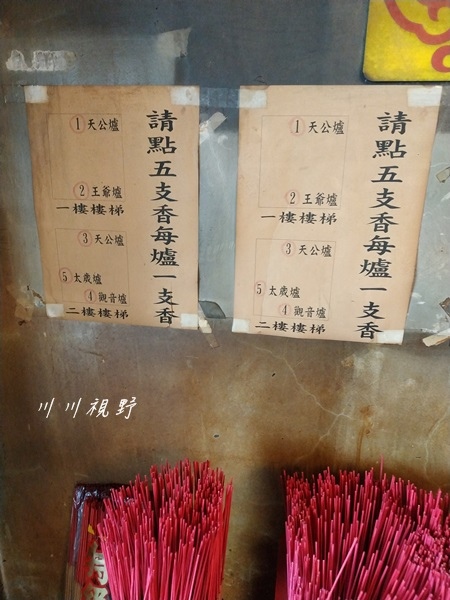 請點五支香每爐一支香
①天公爐
②王爺爐
一樓樓梯
③天公爐
⑤太歲爐
④觀音爐
二樓樓梯
請點五支香每爐一支香
①天公爐
②王爺爐
一樓樓梯
③天公爐
⑤太歲爐
④觀音爐
二樓樓梯
川川視野